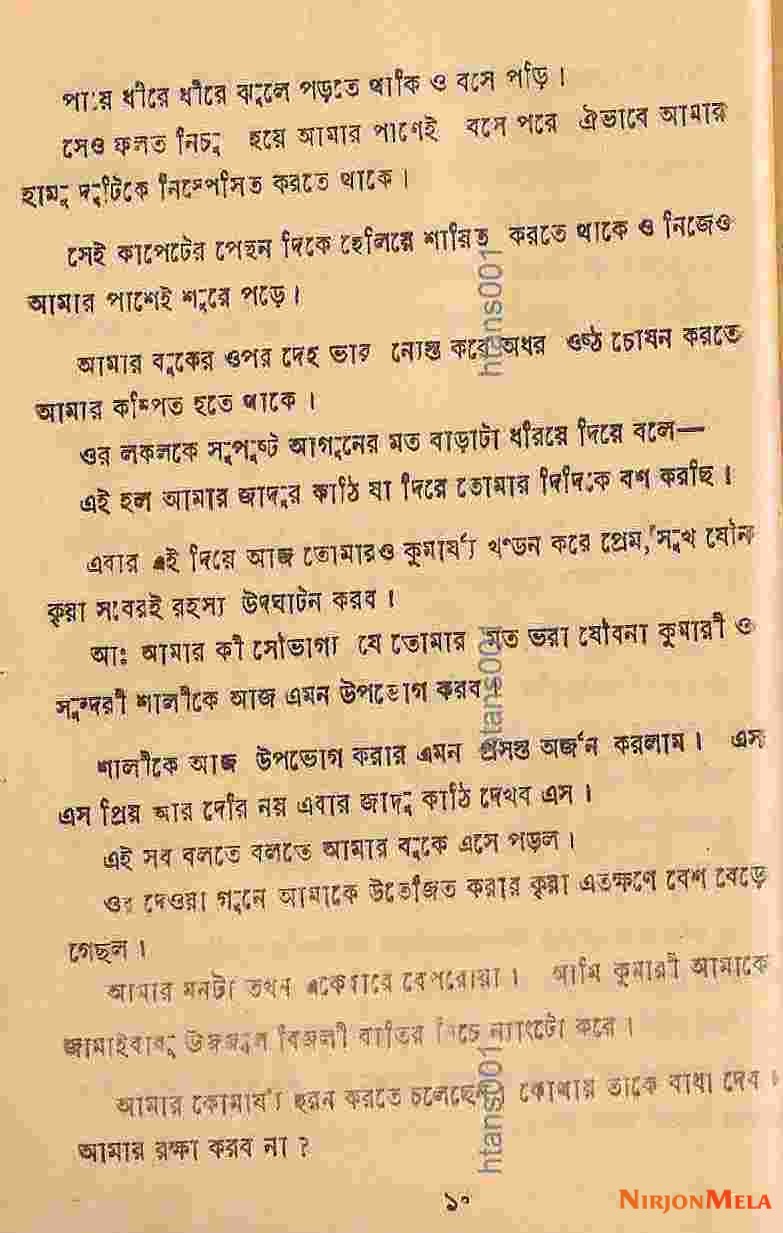 পায়ে ধীরে ধীরে ঝুলে পড়তে থাকি ও বসে পড়ি।
সেও ফলত নিচু হয়ে আমার পাশেই বসে পরে ঐভাবে আমার
দুটিকে নিস্পেসিত করতে থাকে।
সেই কাপেটের পেছন দিকে হেলিয়ে শায়িত করতে থাকে ও নিজেও
আমার পাশেই শুয়ে পড়ে।
আমার বুকের ওপর দেহ ভার নোস্ত করে অধর ওষ্ঠ চোষন করতে
আমার কম্পিত হতে থাকে।
ওর লকলকে সুপুষ্ট আগুনের মত বাড়াটা ধরিয়ে দিয়ে বলে—
এই হল আমার জাদুর কাঠি যা দিয়ে তোমার দিদিকে বশ করছি।
এবার এই দিয়ে আজ তোমারও কুমার্য্য খণ্ডন করে প্রেম, সুখ যৌন
কৃয়া সবেরই রহস্য উদঘাটন করব।
আঃ আমার কী সৌভাগ্য যে তোমার মত ভরা যৌবনা কুমারী ও
সুন্দরী শালীকে আজ এমন উপভোগ করব।
শালীকে আজ উপভোগ করার এমন প্রসস্ত অর্জন করলাম। এস
এস প্রিয় আর দেরি নয় এবার জাদু কাঠি দেখব এস।
এই সব বলতে বলতে আমার বুকে এসে পড়ল।
ওর দেওয়া গুনে আমাকে উতেজিত করার কৃয়া এতক্ষণে বেশ বেড়ে
গেছল।
আমার মনটা তখন একেবারে বেপরোয়া। আমি কুমারী আমাকে
জামাইবাবু উজ্জল বিজলী বাতির নিচে ন্যাংটো করে।
আমার কোমার্য্য হরন করতে চলেছেন। কোথায় তাকে বাধা দেব।
আমার রক্ষা করব না?
১০
htans001
htans001
htans001
NIRJONMELA